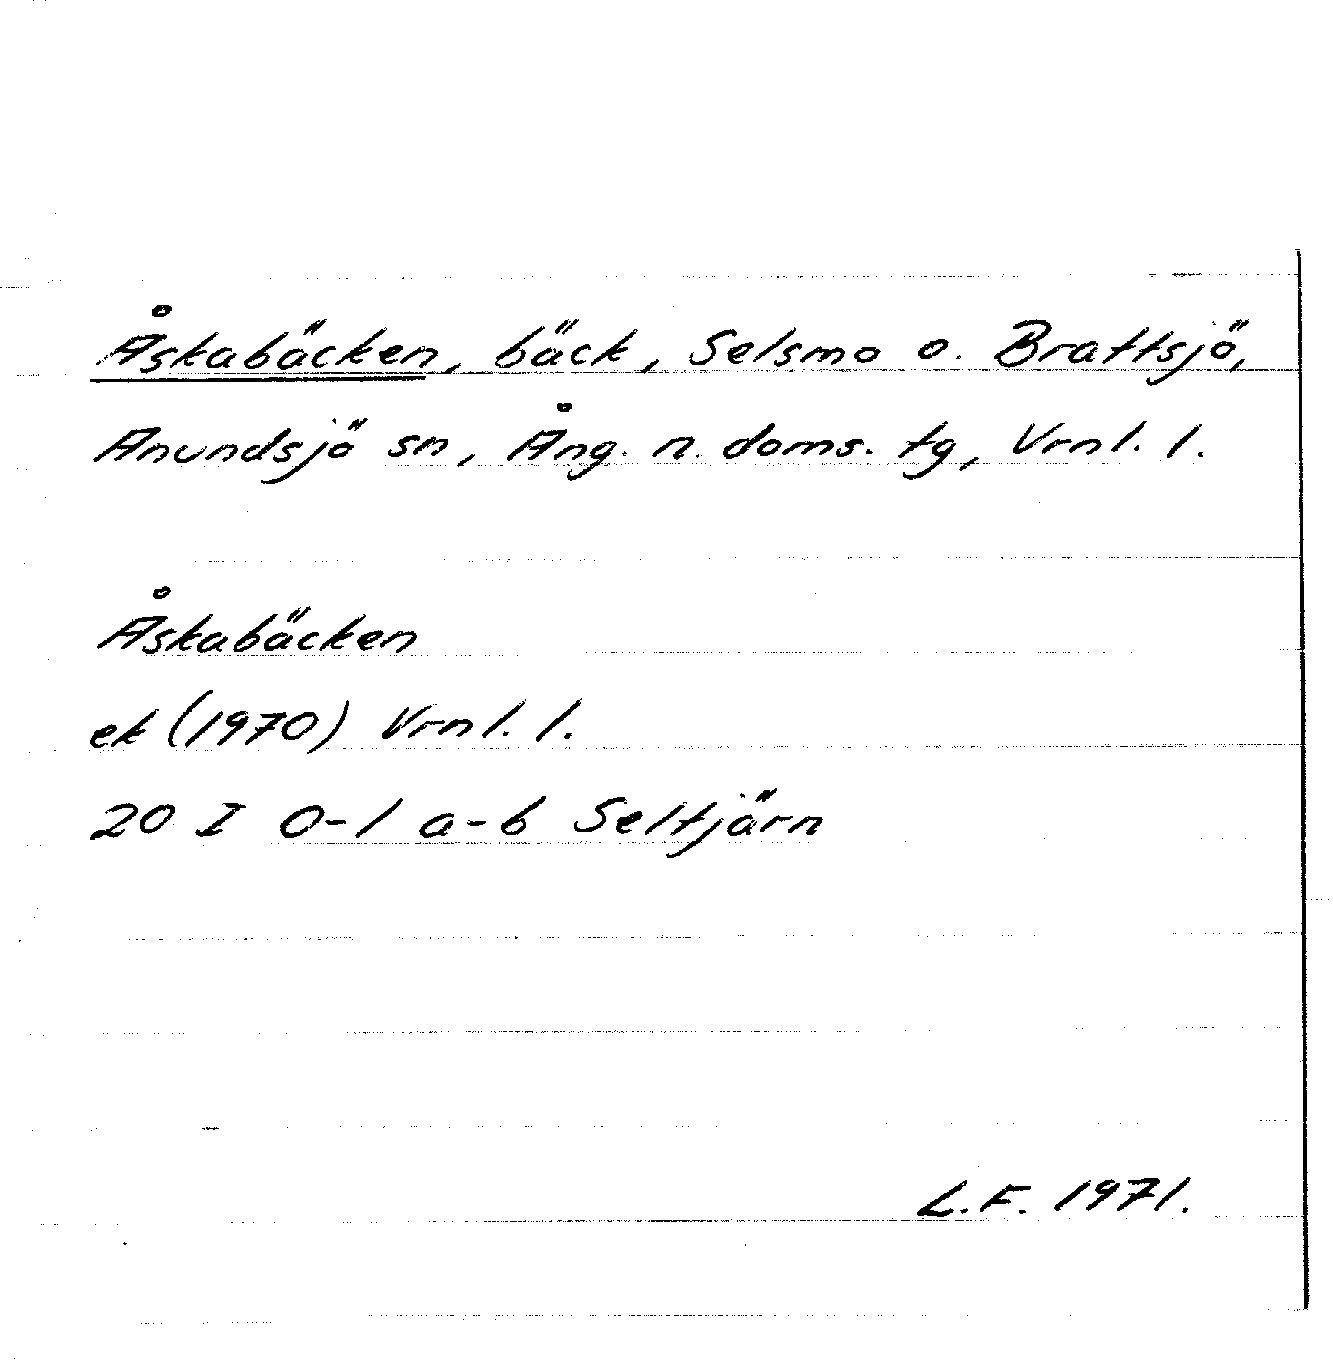 Åskabäcken, bäck, Selsmo o. Brattsjö,
Anundsjö sn, Ång. n. doms. tg, Vrnl. l.
Åskabäcken
ek (1970) Vrnl. l.
20 I 0-1 a-b Seltjärn
L.F. 1971.